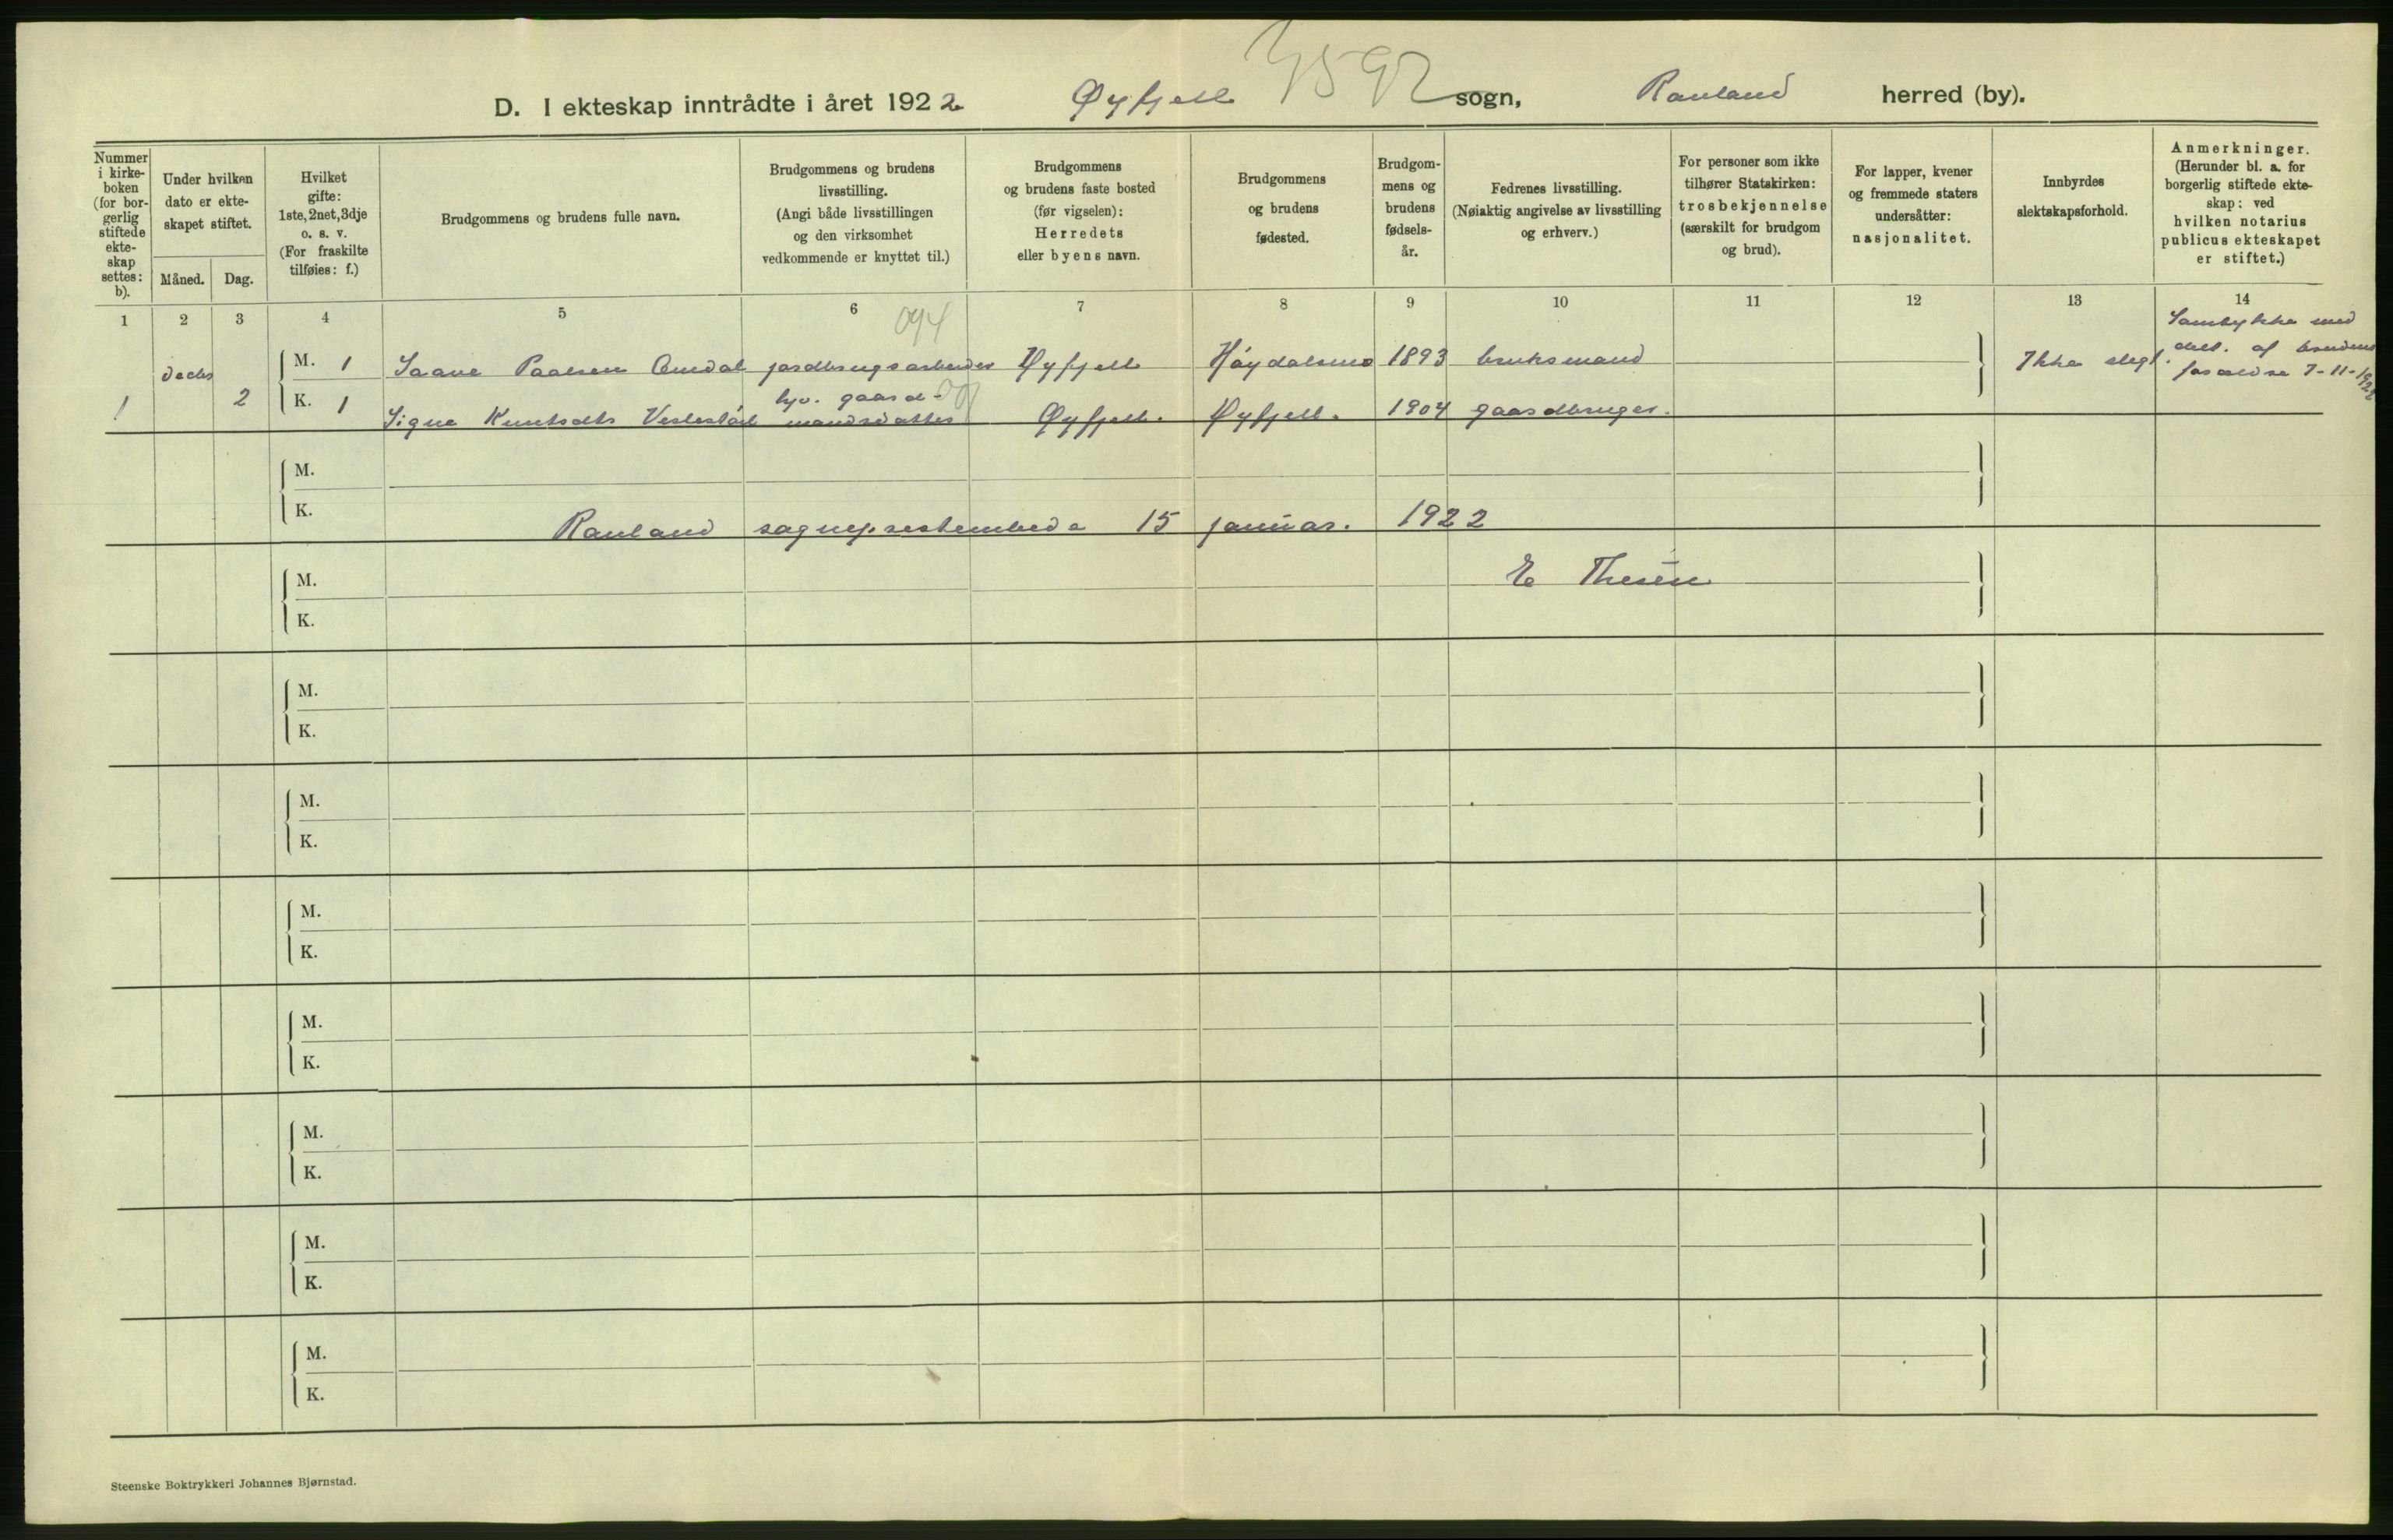 D. I ekteskap inntrådte i året 1922 Øyfjell sogn, Rauland herred (by).
Nummer i kirke-boken (for bor-gerlig stiftede ekte-skap settes: b).
Under hvilken dato er ekte-skapet stiftet.
Måned. Dag.
Hvilket gifte: 1ste, 2net, 3dje o. s. v. (For fraskilte tilføies: f.)
Brudgommens og brudens fulle navn.
Brudgommens og brudens livsstilling. (Angi både livsstillingen og den virksomhet vedkommende er knyttet til.)
Brudgommens og brudens faste bosted (før vigselen): Herredets eller byens navn.
Brudgommens og brudens fødested.
Brudgom-mens og brudens fødsels-år.
Fedrenes livsstilling. (Nøiaktig angivelse av livsstilling og erhverv.)
For personer som ikke tilhører Statskirken: trosbekjennelse (særskilt for brudgom og brud).
For lapper, kvener og fremmede staters undersåtter: nasjonalitet.
Innbyrdes slektskapsforhold.
Anmerkninger. (Herunder bl. a. for borgerlig stiftede ekte-skap: ved hvilken notarius publicus ekteskapet er stiftet.)
1 2 3 4 5 6 7 8 9 10 11 12 13 14
decbr M. 1 Paalsen Omdal jordbrugsarbeider Øyfjell Høydalsmo 1893 bruksmand Ikke slegt.
1 2 K. 1 Signe Knutsdtr Veslestøil hjv. gaard-mandsdatter Øyfjell. Øyfjell. 1904 gaardbruger.
Samtykke med
dell. af brudens
forældre 7-11-1922
M.
K.
Rauland sogneprestembede 15 januar. 1922
M. E Thesen
K.
M.
K.
M.
K.
M.
K.
M.
K.
M.
K.
M.
K.
M.
K.
Steenske Boktrykkeri Johannes Bjørnstad.